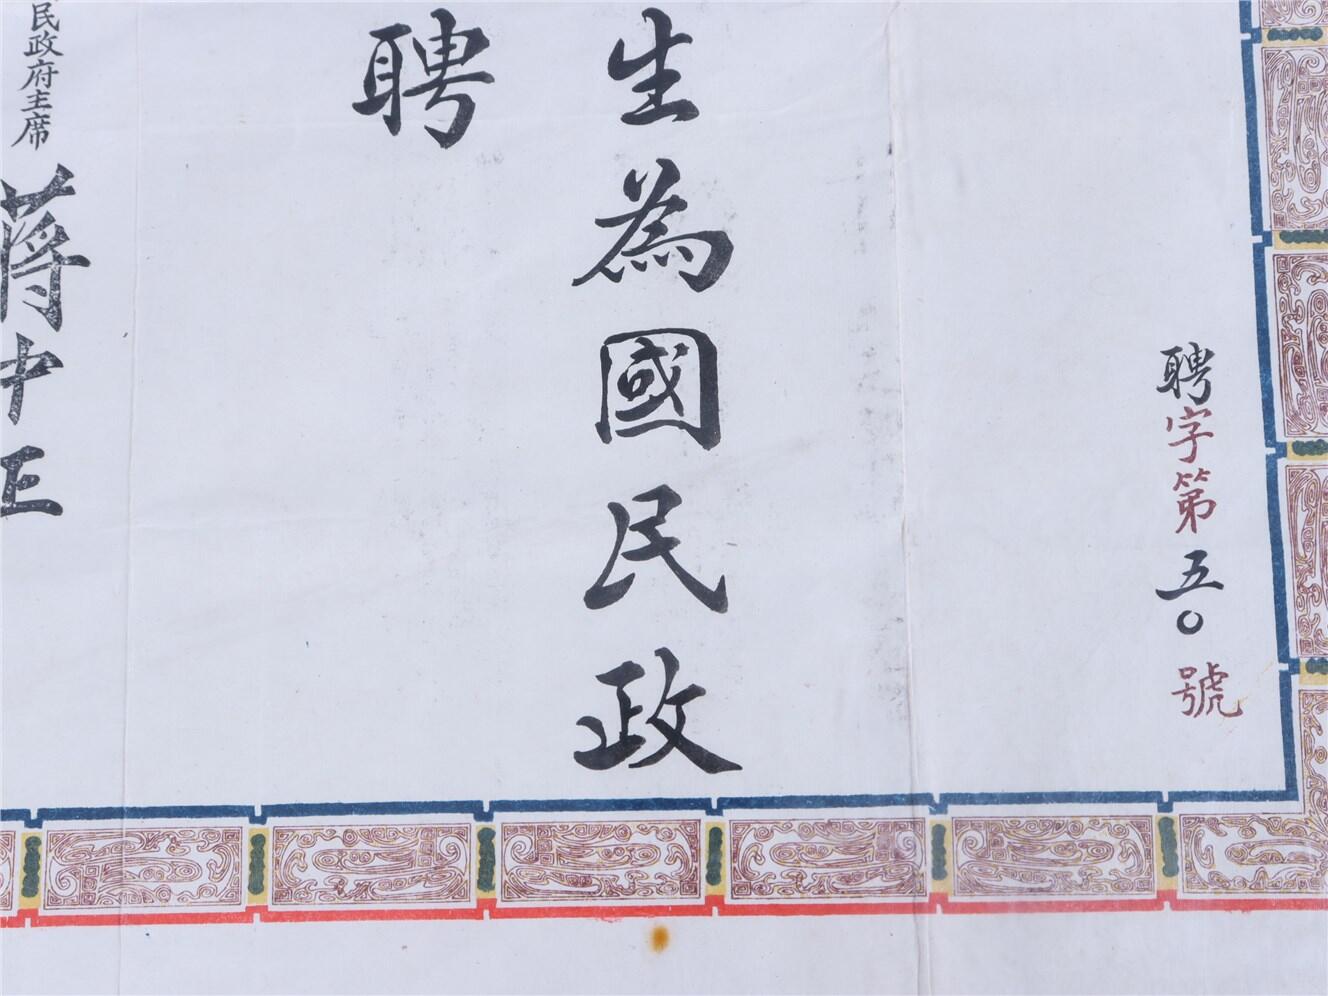 聘字第五〇號
生為國民政
聘
民政府主席 蔣中正